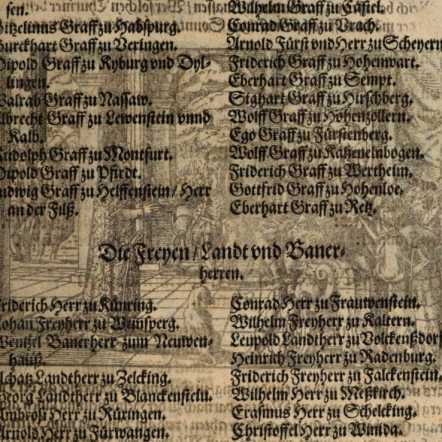 sen.
Itzelinus Graff zu Habspurg.
Burckhart Graff zu Veringen.
Dipold Graff zu Kyburg vnd Dyl-
lingen.
Walrab Graff zu Nassaw.
Albrecht Graff zu Lewenstein vnnd
Kalb.
Rudolph Graff zu Montfurt.
Dipold Graff zu Pfirdt.
Ludwig Graff zu Helffenstein / Herr
an der Filß.
Wilhelm Graff zu Cassel.
Conrad Graff zu Vrach.
Arnold Fürst vnd Herr zu Scheyern
Friderich Graff zu Hohenwart.
Eberhart Graff zu Sempt.
Sighart Graff zu Hirschberg.
Wolff Graff zu Hohenzollern.
Ego Graff zu Fürstenberg.
Wolff Graff zu Katzenelnbogen.
Friderich Graff zu Wertheim.
Gottfrid Graff zu Hohenloe.
Eberhart Graff zu Retz.
Die Freyen / Landt vnd Baner-
herren.
Friderich Herr zu Künring.
Johan Freyherr zu Winsperg.
Wentzel Banerherr zum Neuwen-
hauß.
Achatz Landtherr zu Zelcking.
Georg Landtherr zu Blanckenstein.
Ambrosi Herr zu Rüringen.
Arnold Herr zu Fürwangen.
Conrad Herr zu Frauwenstein.
Wilhelm Freyherr zu Kaltern.
Leupold Landtherr zu Volckenßdorf
Heinrich Freyherr zu Radenburg.
Friderich Freyherr zu Falckenstein.
Wilhelm Herr zu Meßkirch.
Erasmus Herr zu Schelcking.
Christoffel Herr zu Winida.